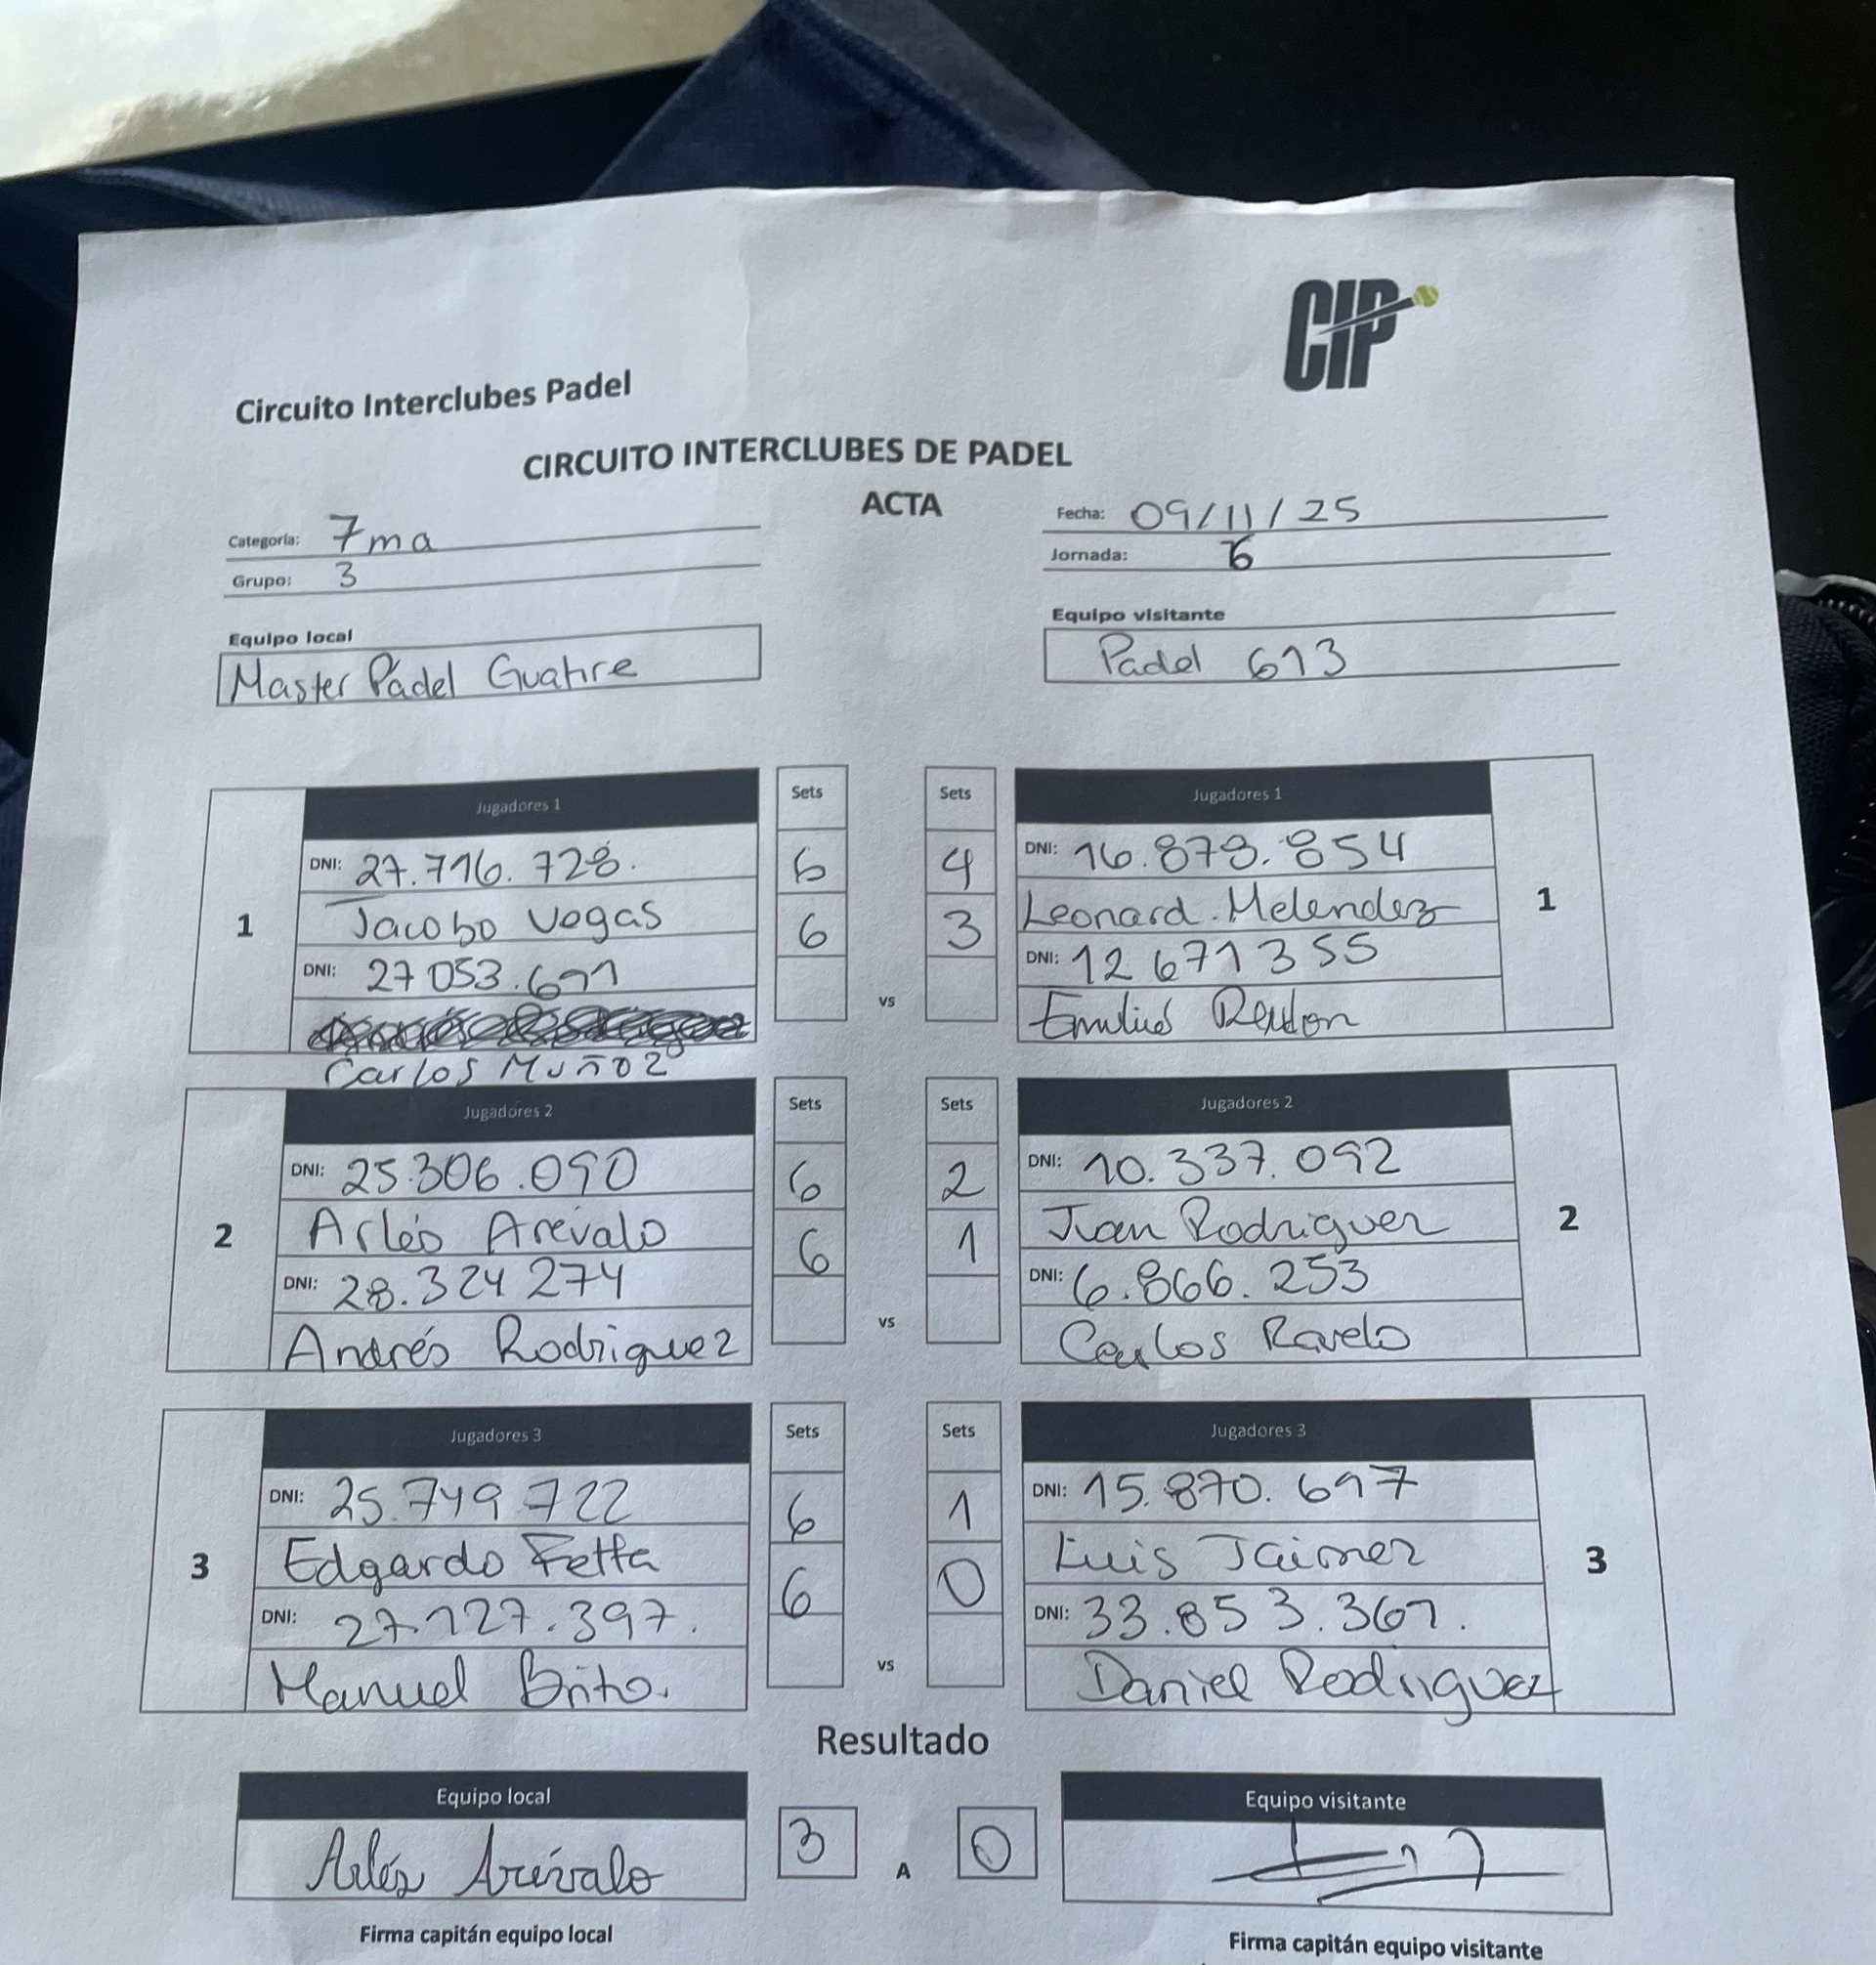 CIP
Circuito Interclubes Padel
CIRCUITO INTERCLUBES DE PADEL
ACTA
Categoría: 7ma
Grupo: 3
Fecha: 09/11/25
Jornada: 6
Equipo local
Master Pádel Guatire
Equipo visitante
Padel 613
1
Jugadores 1
DNI: 27.716.728.
Jacobo Vegas
DNI: 27 053.691
Carlos Muñoz
Sets
6
6
vs
Sets
4
3
Jugadores 1
DNI: 16.878.854
Leonard Melendez
DNI: 12 671 355
Emilio
1
2
Jugadores 2
DNI: 25.306.090
Arlés Arévalo
DNI: 28.324 274
Andrés Rodriguez
Sets
6
6
vs
Sets
2
1
Jugadores 2
DNI: 10.337.092
Juan Rodriguez
DNI: 6.866.253
Carlos Ravelo
2
3
Jugadores 3
DNI: 25.749 722
Edgardo Fetta
DNI: 27.127.397.
Manuel Brito.
Sets
6
6
vs
Sets
1
0
Jugadores 3
DNI: 15.870.697
Luis Jaimez
DNI: 33.853.367.
Daniel Rodriguez
3
Resultado
Equipo local
Arlés Arévalo
Firma capitán equipo local
3
A
0
Equipo visitante
Firma capitán equipo visitante